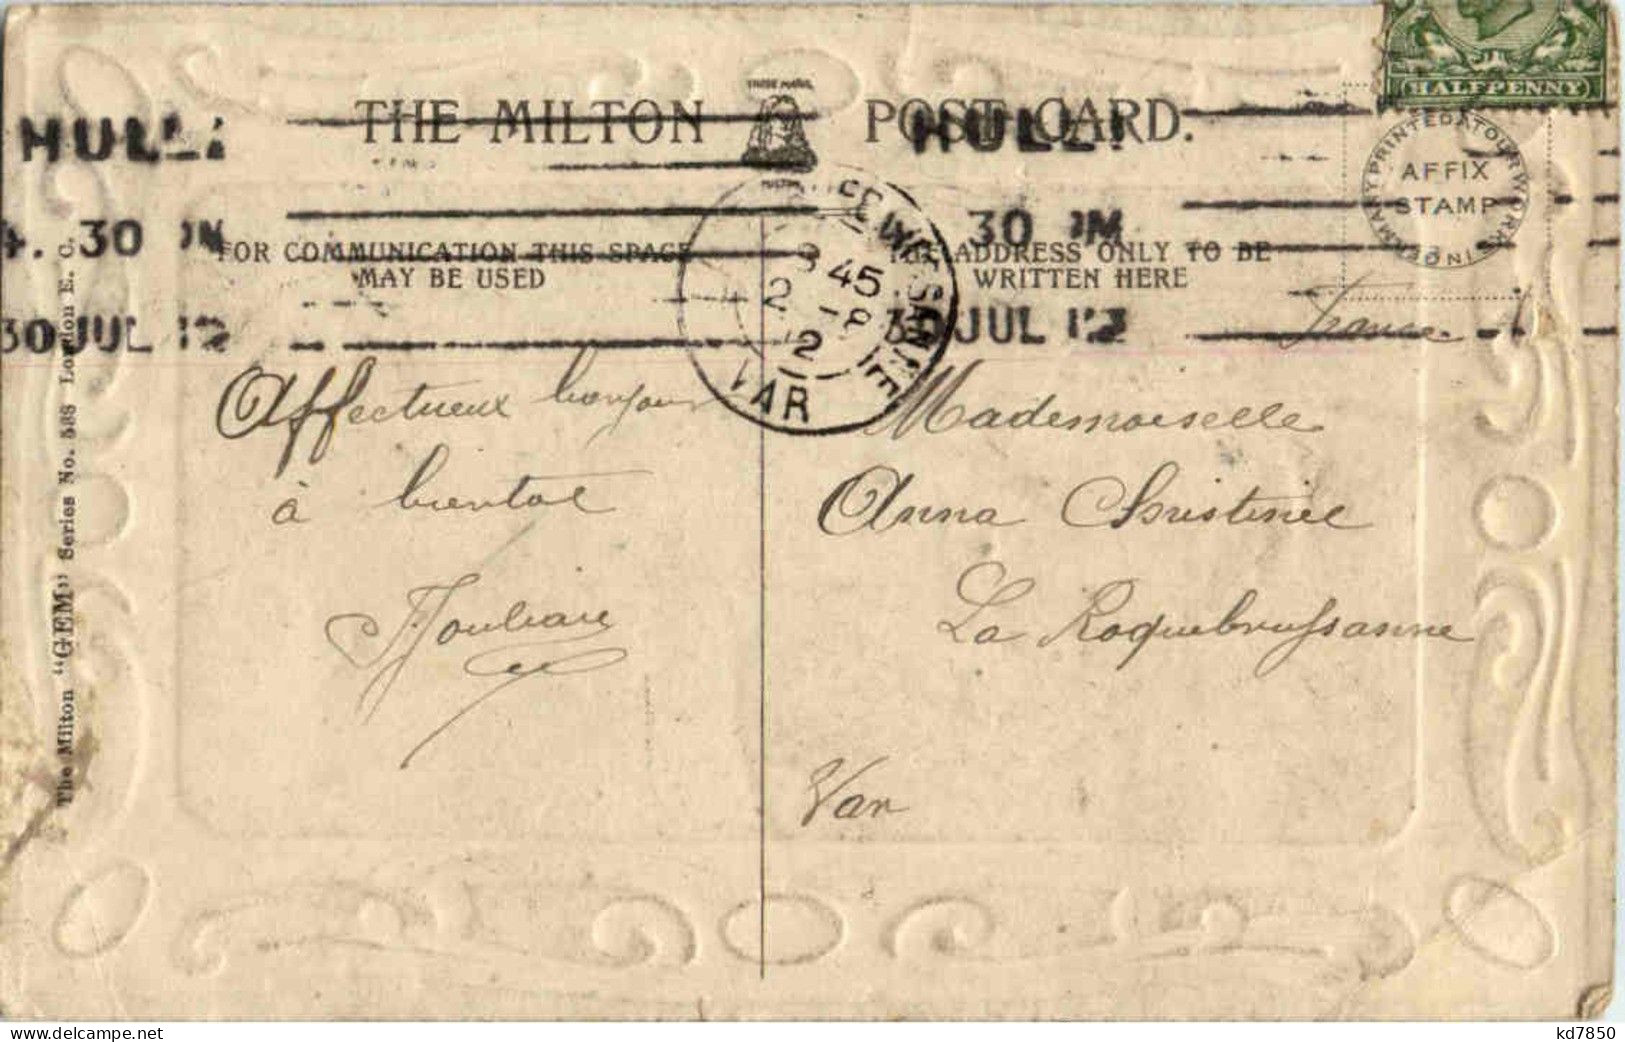 THE MILTON POST CARD.
TRADE MARK
HULL!
HULL!
4.30 PM
30 PM
30 JUL 12
30 JUL 12
HALFPENNY
AFFIX
STAMP
PRINTED AT OUR WORKS IN GERMANY
FOR COMMUNICATION THIS SPACE
MAY BE USED
THE ADDRESS ONLY TO BE
WRITTEN HERE
45
VAR
France
Affectueux bonjour
à bientot
Mademoiselle
Anna
La Roquebrussanne
Var
The Milton "GEM" Series No. 588 London E. C.
kd7850